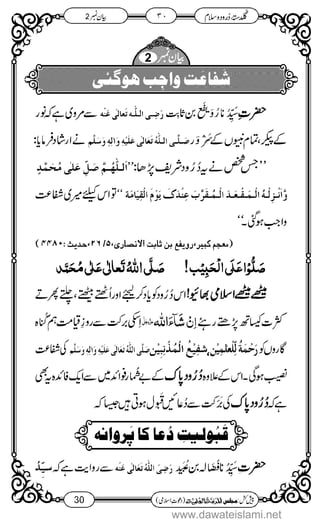 گلدستۂ دُرود و سلام ۳۰ بیان نمبر 2
بیان نمبر 2
شفاعت واجب ہوگئی
حضرتِ سَیِّدُنا رُوَیفَع بن ثابت رَضِیَ اللّٰہُ تَعَالٰی عَنْہ سے مروی ہے کہ نور
کے پیکر، تمام نبیوں کے سَرْوَر صَلَّی اللّٰہُ تَعَالٰی عَلَیْہِ وَاٰلِہٖ وَسَلَّم نے ارشاد فرمایا:
’’جس شخص نے یہ دُرُود شریف پڑھا: ’’اَللّٰہُمَّ صَلِّ عَلٰی مُحَمَّدٍ
وَّاَنْزِلْہُ الْمَقْعَدَ الْمُقَرَّبَ عِنْدَکَ یَوْمَ الْقِیَامَۃِ‘‘ تو اس کیلئے میری شفاعت
واجب ہوگئی۔‘‘
(معجم کبیر، رویفع بن ثابت الانصاری، ۲۶/۵، حدیث: ۴۴۸۰)
صَلُّوْا عَلَی الْحَبِیْب! صَلَّی اللّٰہُ تَعَالٰی عَلٰی مُحَمَّد
میٹھے میٹھے اسلامی بھائیو! اس دُرُود کو یاد کر لیجئے اور اُٹھتے بیٹھتے، چلتے پھرتے
کثرت کیساتھ پڑھتے رہئے اِنْ شَآءَ اللّٰہ اسکی بَرَکت سے روزِ قیامت ہم گناہ
گاروں کو رَحْمَۃٌ لِّلْعٰلَمِیْن، شَفِیْعُ الْمُذْنِبِیْن صَلَّی اللّٰہُ تَعَالٰی عَلَیْہِ وَاٰلِہٖ وَسَلَّم کی شفاعت
نصیب ہوگی۔ اس کے علاوہ دُرُود پاک کے بے شمار فوائد میں سے ایک فائدہ یہ بھی
ہے کہ دُرُود پاک کی بَرَکت سے دُعائیں قبول ہوتی ہیں جیسا کہ
قَبُولیتِ دُعا کا پَروانہ
حضرتِ سَیِّدُنا فَضَالہ بن عُبَید رَضِیَ اللّٰہُ تَعَالٰی عَنْہ سے روایت ہے کہ سیِّدِ
30
www.dawateislami.net